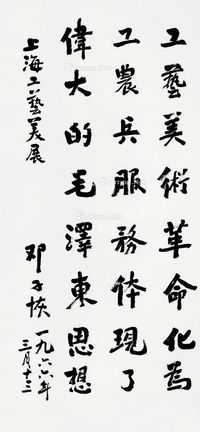 工藝美術革命化為
工農兵服務体現了
偉大的毛澤東思想
上海工藝美展
邓子恢 一九六六年
三月十三